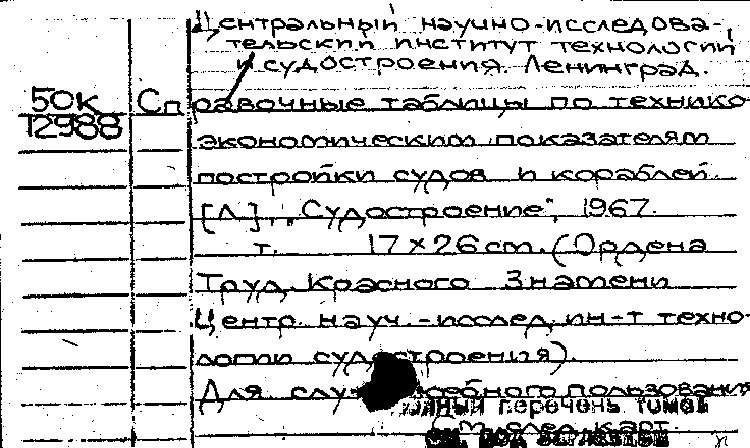 Центральный научно-исследова-
тельский институт технологии
и судостроения. Ленинград.
50к Справочные таблицы по технико
12988 экономическим показателям
постройки судов и кораблей.
[Л], „Судостроение", 1967.
т. 17 × 26 см. (Ордена
Труд. Красного Знамени
Центр. науч.-исслед. ин-т техно-
логии судостроения).
Для служебного пользования
перечень томов
см. след. карт.